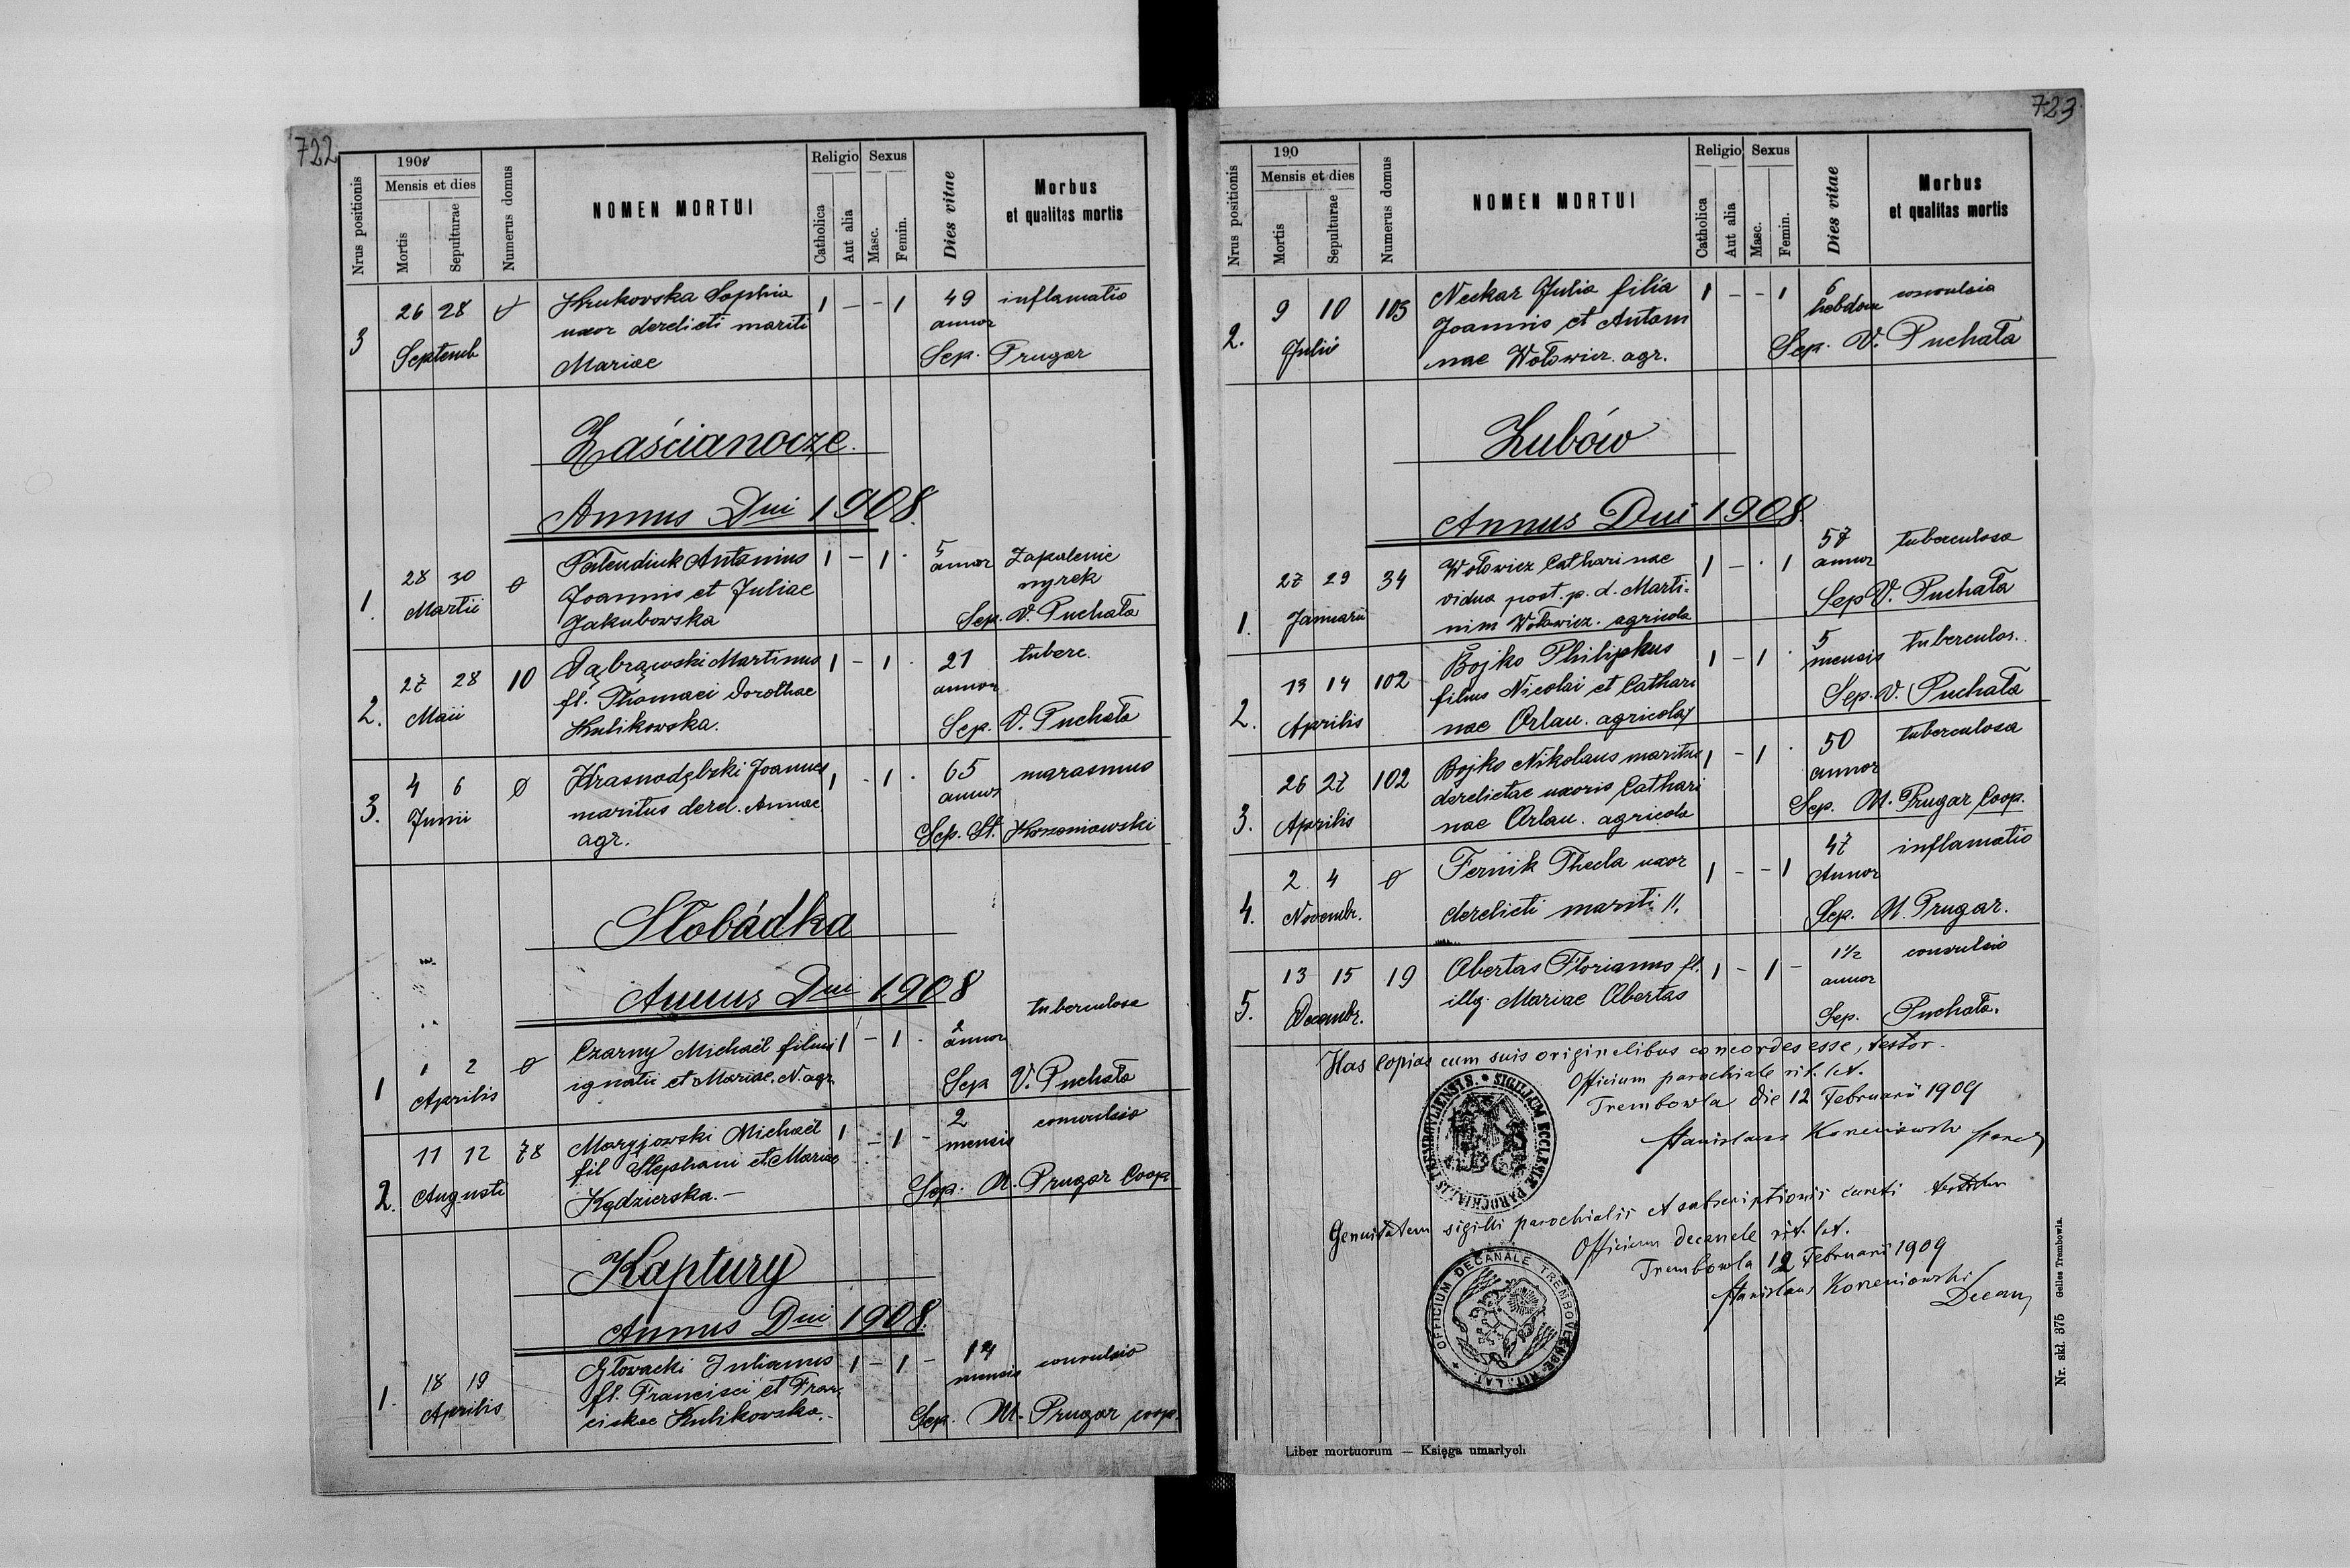 722
Nrus positionis
1908
Mensis et dies
Mortis
Sepulturae
Numerus domus
NOMEN MORTUI
Religio
Catholica
Aut alia
Sexus
Masc.
Femin.
Dies vitae
Morbus
et qualitas mortis
3 26 28 Septemb
Krukovska Sophia
uxor derelicti mariti
Mariae
1 — - 1 49 annor inflamatio
Sep. Prugar
Zaścianocze.
Annus Dni 1908.
1. 28 30 Martii
Patendiuk Antonius
Joannis et Juliae
Jakubowska
1 — 1 · 5 annor Zapalenie
nyrek
Sep. V. Puchała
2. 27 28 Maii 10
Dąbrąwski Martinus
fl. Thomaei Dorothae
Kulikowska.
1 — 1 · 21 annor tuberc.
Sep. V. Puchała
3. 4 6 Junii
Krasnodębski Joannes
maritus derel. Annae
agr.
1 - 1 · 65 annor marasmus
Sep. St. Korzeniowski
Słobádka
Annus Dni 1908
1 1 2 Aprilis
Czarny Michaël filius
ignatii et Mariae. N. agr.
1 — 1 - 2 annor tuberculosa
Sep V. Puchała
2. 11 12 Augusti 78
Maryjowski Michaël
fil Stephani et Mariae
Kędzierska. —
1 — 1 - 2 mensis convulsio
Sep. M. Prugar Coop
Kaptury
Annus Dni 1908.
1. 18 19 Aprilis
Głovacki Julianus
fl. Francisci et Fran
ciskae Kulikovska.
1 — 1 — 14 mensis convulsio
Sep. M. Prugar coop.
723
Nrus positionis
190
Mensis et dies
Mortis
Sepulturae
Numerus domus
NOMEN MORTUI
Religio
Catholica
Aut alia
Sexus
Masc.
Femin.
Dies vitae
Morbus
et qualitas mortis
2. 9 10 Julii 103
Neckar Julia filia
Joannis et Anton
nae Wołowicz. agr.
1 - - 1 6 hebdom convulsia
Sep. V. Puchała
Łubów
Annus Dni 1908.
1. 27 29 Januarii 34
Wołowicz Catharinae
vidua post. p. d. Marti-
nim Wołowicz. agricola
1 — · 1 57 annor tuberculosa
Sep V. Puchała
2. 13 14 Aprilis 102
Bojko Philipkus
filius Nicolai et Cathari
nae Orlau. agricola
1 - 1 · 5 mensis tuberculos.
Sep. V. Puchała
3. 26 27 Aprilis 102
Bojko Nikolaus maritus
derelictae uxoris Cathari
nae Orlau. agricola
1 - 1 · 50 annor tuberculosa
Sep. M. Prugar Coop.
4. 2 4 Novembr.
Fernik Thecla uxor
derelicti mariti
1 - - 1 47 Annor inflamatio
Sep. M. Prugar.
5. 13 15 Decembr. 19
Obertas Florianus fl.
illg. Mariae Obertas
1 - 1 - 1½ annor convulsio
Sep. Puchała.
Has Copias cum suis originalibus concordes esse, testor.
Officium parochiale rit. lat.
Trembowla die 12 Februarii 1909
Stanislaus Korzeniowski
SIGILLUM ECCLESIAE PAROCHIALIS TREMBOVLIENSIS.
Genuitatem sigilli parochialis et subscriptionis
Officium decanale rit. lat.
Trembowla 12 Februarii 1909
Stanislaus Korzeniowski
Decan
OFFICIUM DECANALE TREMBOVLENSE RIT. LAT.
Liber mortuorum — Księga umarłych
Nr. skł. 375 Gelles Trembowla.